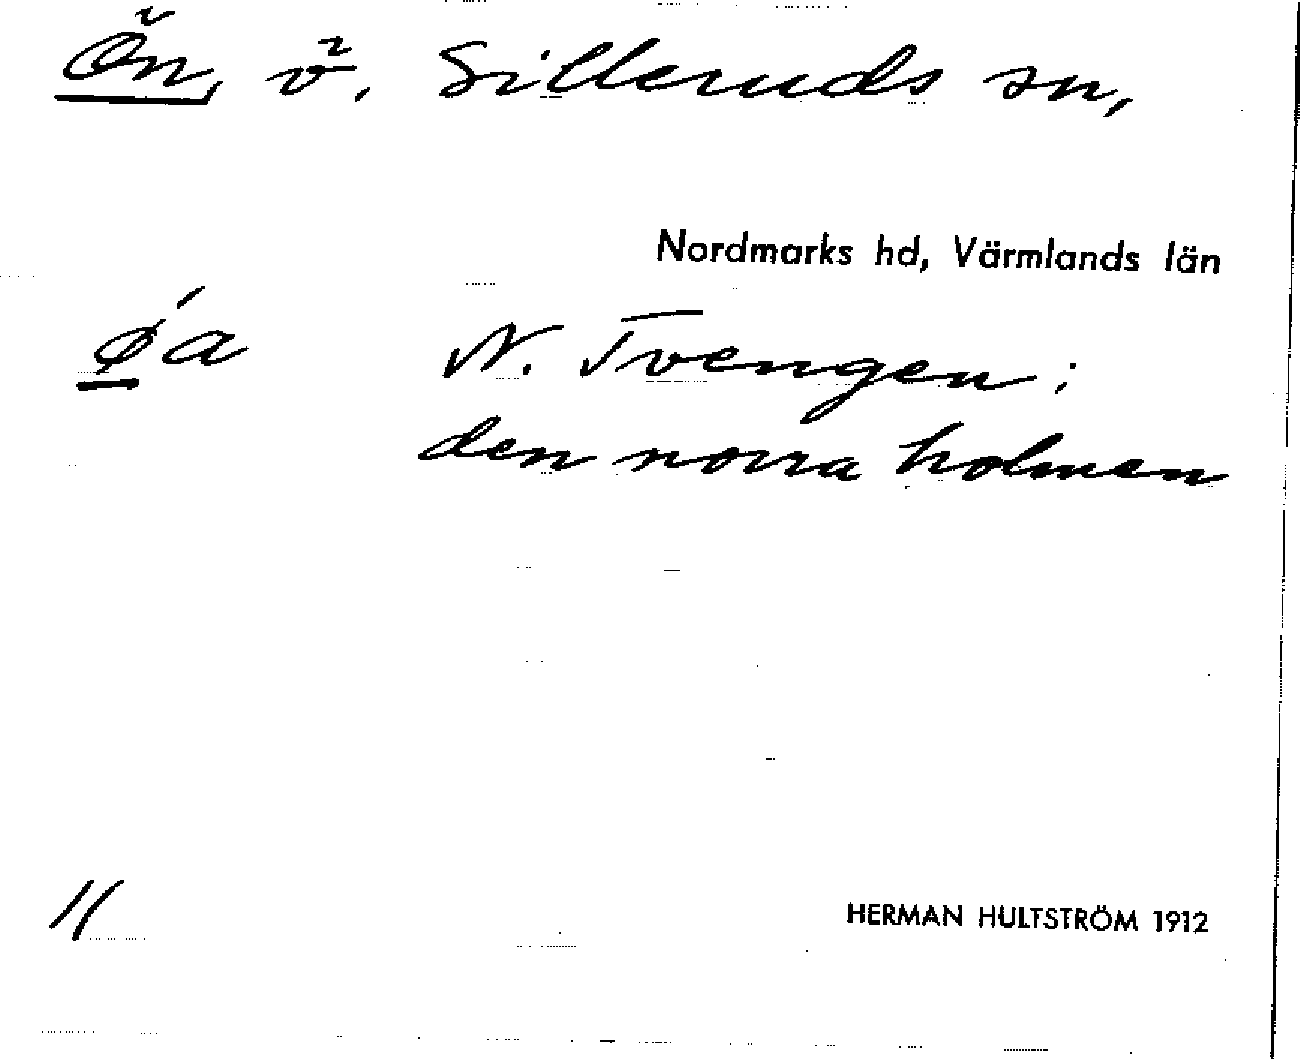 Ön, ö, Silleruds sn,
Nordmarks hd, Värmlands län
ǿa N. Tvengen;
den norra holmen
11
HERMAN HULTSTRÖM 1912